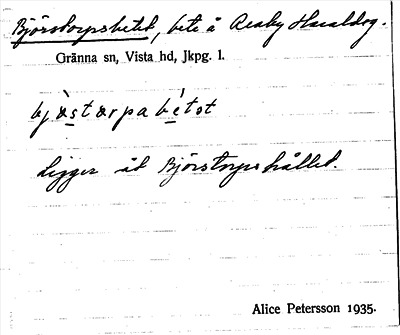 Björstorpsbetet, bete å Reaby Haraldsg.
Gränna sn, Vista hd, Jkpg. l.
bjæstærpabetət
Ligger åt Björstorpshållet.
Alice Petersson 1935.